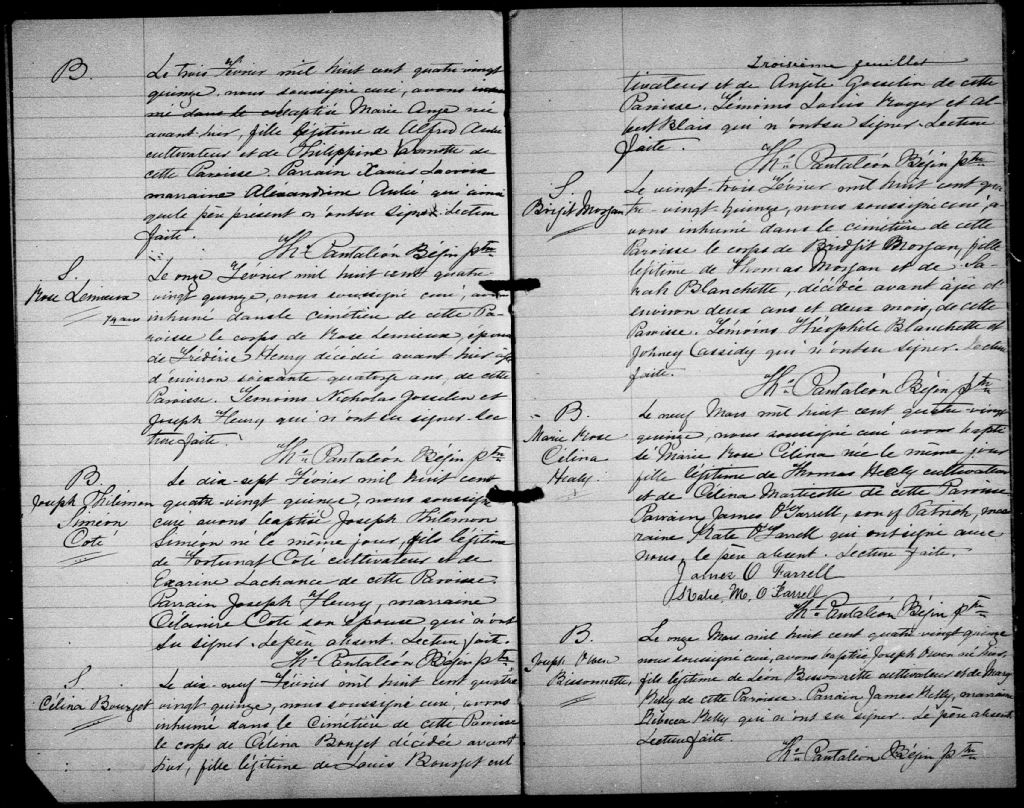 B.
Le trois Février mil huit cent quatre-vingt
quinze, nous soussigné curé, avons
baptisé Marie Ange née
avant-hier, fille légitime de Alfred
cultivateur et de Philippine de
cette Paroisse. Parrain Xavier Lacroix
marraine Alexandrine qui ainsi
que le père présent n'ont su signer. Lecture
faite.
Ths. Pantaléon Bégin ptre
S.
Rose Lemieux
74 ans
Le onze Février mil huit cent quatre-
vingt quinze, nous soussigné curé, avons
inhumé dans le cimetière de cette Pa-
roisse le corps de Rose Lemieux, épouse
de Fréderic Henry décédée avant hier âgée
d'environ soixante quatorze ans, de cette
Paroisse. Témoins Nicholas Josselin et
Joseph Henry qui n'ont su signer. Lec-
ture faite.
Ths. Pantaléon Bégin ptre
B.
Joseph Philemon
Siméon
Coté
Le dix-sept Février mil huit cent
quatre-vingt quinze, nous soussigné
curé avons baptisé Joseph Philemon
Siméon né le même jour, fils légitime
de Fortunat Coté cultivateur et de
Exarine Lachance de cette Paroisse.
Parrain Joseph Henry, marraine
Célanire Coté son épouse qui n'ont
su signer. Le père absent. Lecture faite.
Ths. Pantaléon Bégin ptre
S.
Célina Bourget
Le dix neuf Février mil huit cent quatre
vingt quinze, nous soussigné curé, avons
inhumé dans le Cimetière de cette Paroisse
le corps de Célina Bourget décédée avant
hier, fille légitime de Louis Bourget cul
Troisième feuillet
tivateur et de Angèle Gosselin de cette
Paroisse. Témoins Louis Roger et Al-
bert Blais qui n'ont su signer. Lecture
faite.
Ths. Pantaléon Bégin ptre
S.
Brigit Morgan
Le vingt-trois Février mil huit cent qua-
tre-vingt quinze, nous soussigné curé, a-
vons inhumé dans le cimetière de cette
Paroisse le corps de Bridgit Morgan, fille
légitime de Thomas Morgan et de Sa-
rah Blanchette, décédée avant âgée d'
environ deux ans et deux mois, de cette
Paroisse. Témoins Théophile Blanchette et
Johney Cassidy qui n'ont su signer. Lecture
faite.
Ths. Pantaléon Bégin ptre
B.
Marie Rose
Célina
Healy
Le neuf Mars mil huit cent quatre-vingt
quinze, nous soussigné curé avons bapti-
sé Marie Rose Célina née le même jour
fille légitime de Thomas Healy cultivateur
et de Célina Marticotte de cette Paroisse
Parrain James O'Farrell, son of Patrick, mar
raine Kate O'Farrell qui ont signé avec
nous, le père absent. Lecture faite.
James O Farrell
Katie. M. O Farrell
Ths. Pantaléon Bégin ptre
B.
Joseph Owen
Bissonnette
Le onze Mars mil huit cent quatre vingt quinze
nous soussigné curé, avons baptisé Joseph Owen né hier,
fils légitime de Léon Bissonnette cultivateur et de Mary
Kelly de cette Paroisse. Parrain James Kelly, marraine
Rebecca Kelly qui n'ont su signer. Le père absent.
Lecture faite.
Ths. Pantaléon Bégin ptre